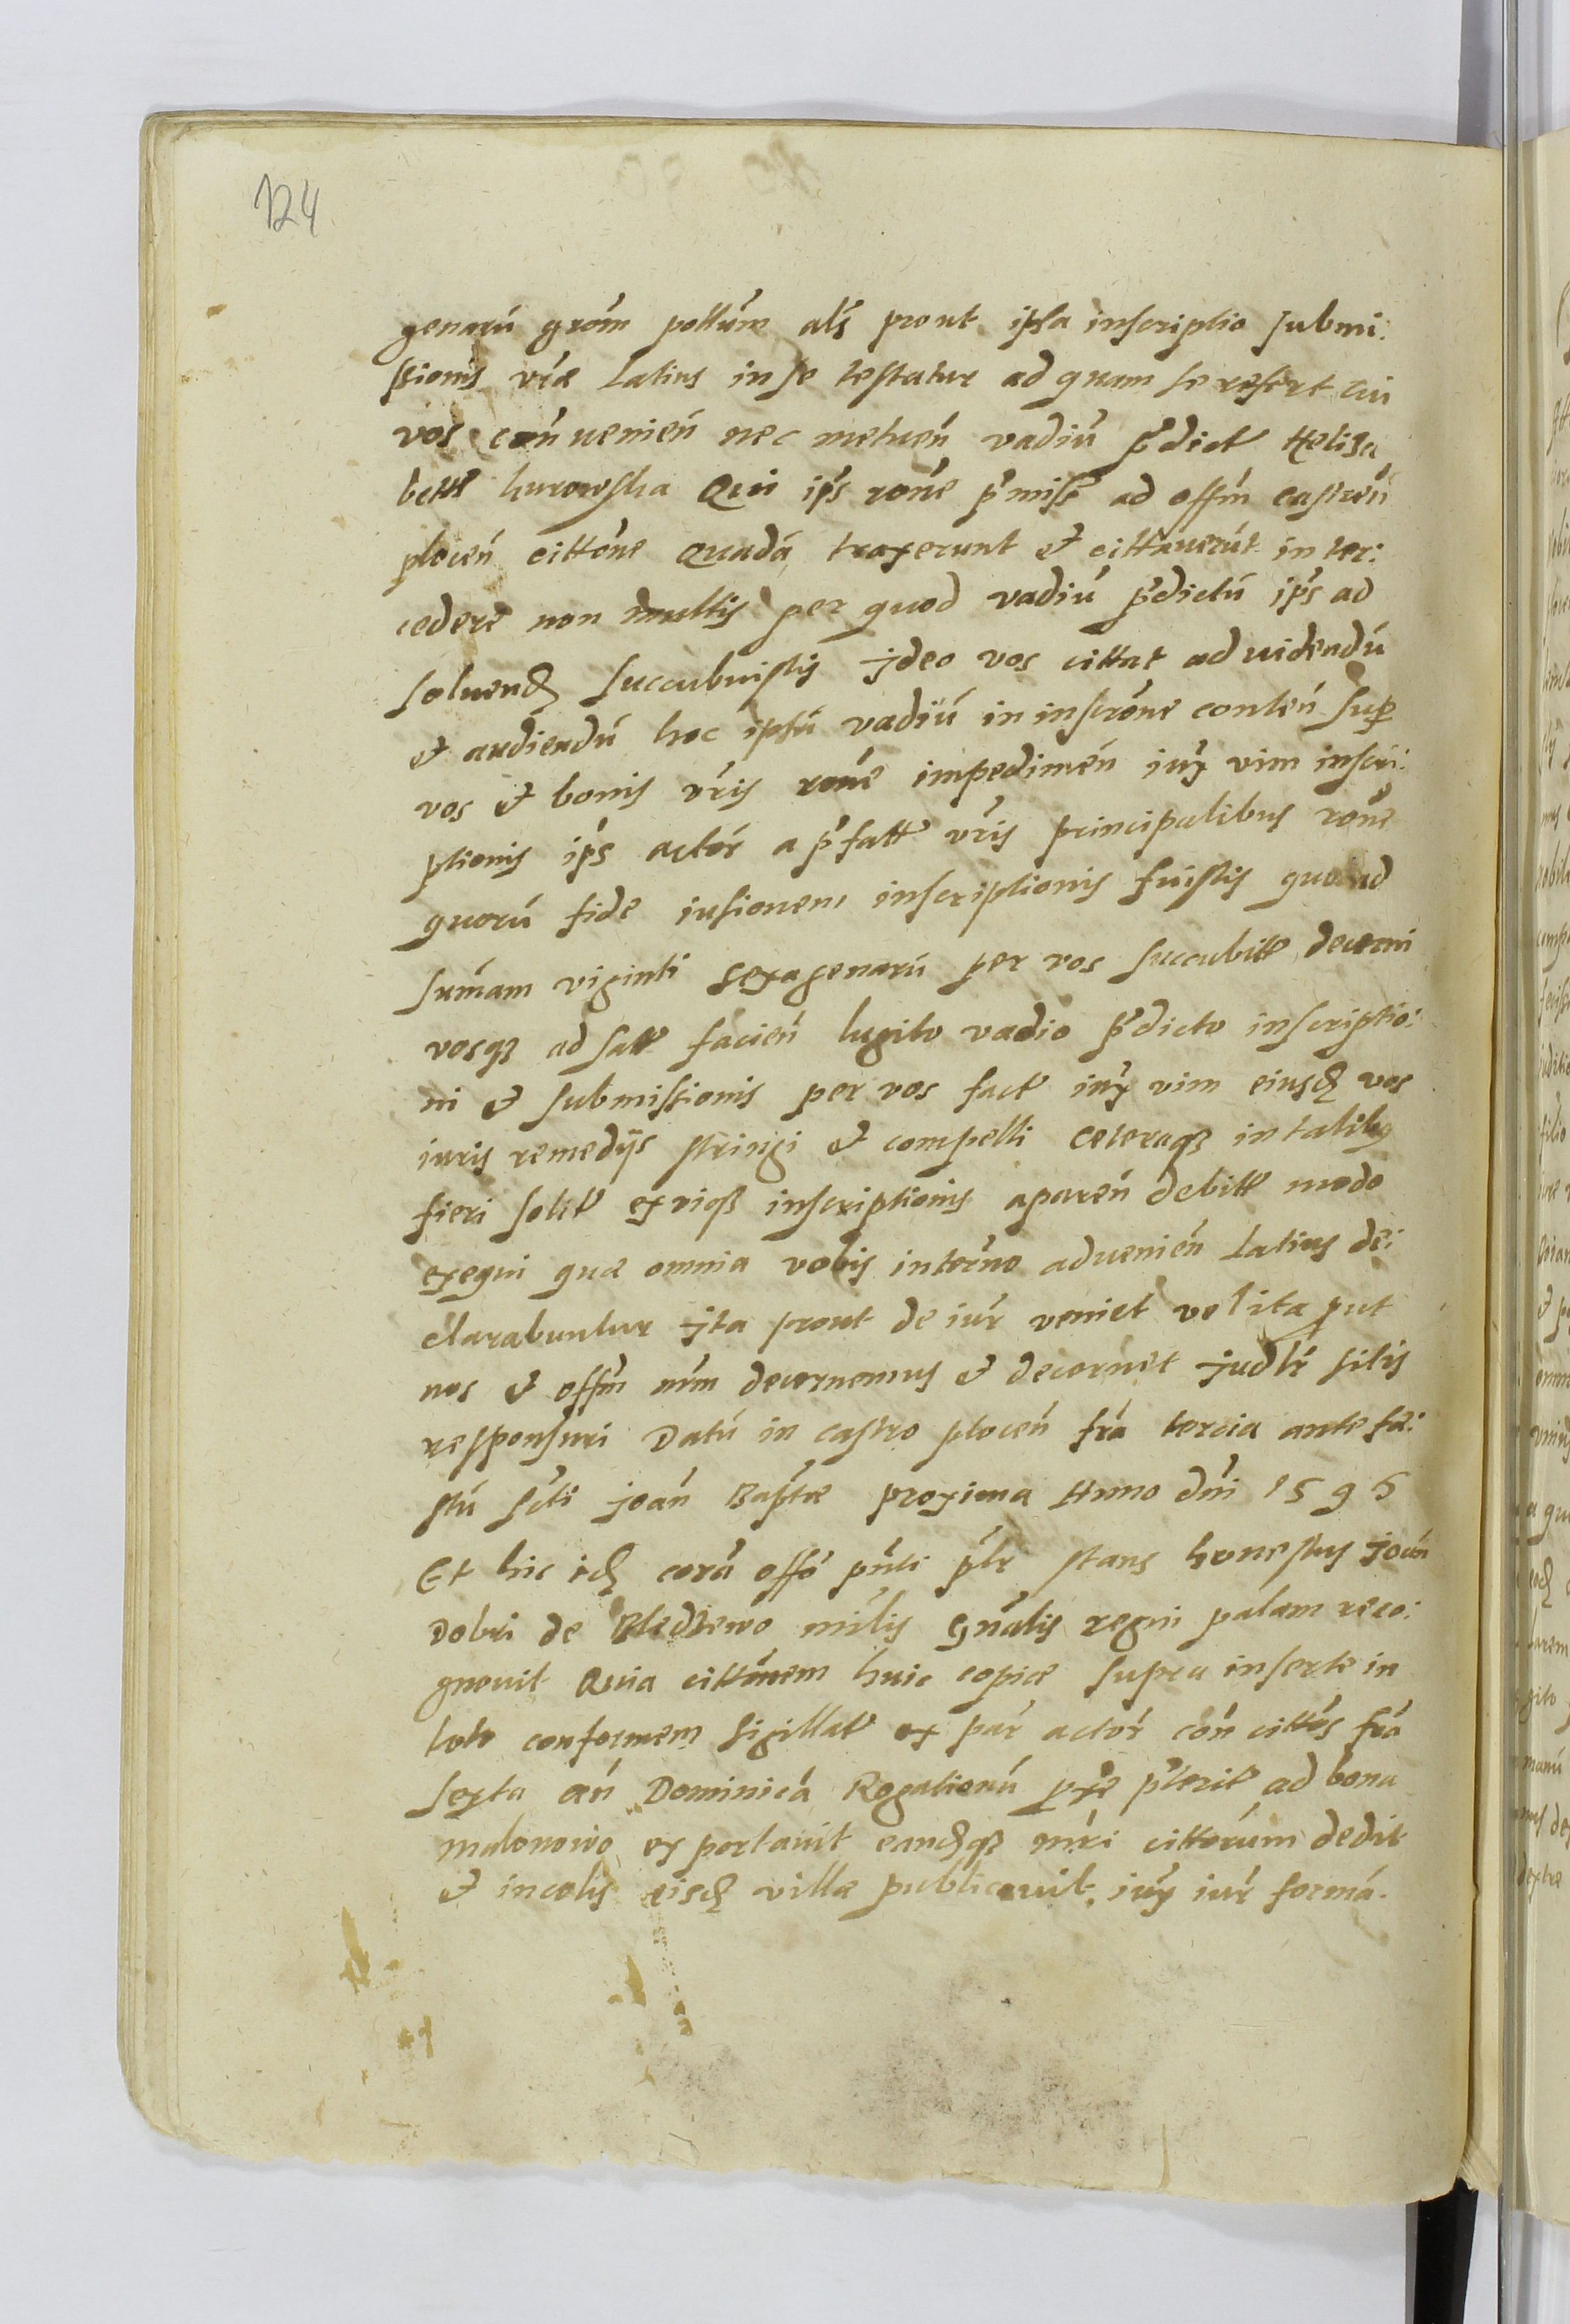 124
genarū grom̄ pollum̄ als̄ prout ipsa inscriptio submi:
ssionis vr̄æ latius in se testatur ad quam se refert cui
vos con̄uenien̄ nec metuen̄ vadiū p̄dict Heliza
beth hurowska Qui ip̄s ron̄e p̄miss ad offm̄ castren̄
plocen̄ citton̄e Quadā traxerunt et cittauerūt inter:
cedere non multis per quod vadiū p̄dictū ip̄s ad
soluend succubuistis jdeo vos cittat ad uidendū
et audiendū hoc ipsū vadiū in inscron̄e conten̄ sup
vos et bonis vr̄is ron̄e impedimen̄ iux vim inscri:
ptionis ip̄s actor̄ a p̄fatt vr̄is principalibus ron̄e
quorū fide iusionem inscriptionis fuistis quoad
sum̄am viginti sexagenarū per vos succubitt decerni
vosq ad satt facien̄ lugito vadio p̄dicto inscriptio:
ni et submissionis per vos fact iux vim eiusd vos
iuris remedijs stringi et compelli ceteraq in talibq
fieri solit exviq inscriptionis aparen̄ debitt modo
exequi quæ omnia vobis in ter̄no aduenien̄ latius de:
clarabuntur jta prout de iur̄ veniet vel ita put
nos et offm̄ nr̄m decernemus et decernet judlr̄ sitis
responsuri Datū in castro plocen̄ fr̄a tercia ante fe:
stū sc̄ti joan̄ Bap̄tæ proxima Anno dn̄i 1596
Et hic id corā offō pn̄ti p̄lr stans honestus joan̄
Dobri de Bledzewo mil̄is Gn̄alis regni palam reco:
gnouit Quia cittōnem huic copiæ supra inserte in
toto conformem sigillat ex par̄ actor̄ con̄ cittōs fr̄a
sexta an̄ Dominicā Rogationū p̄xe p̄terit ad bona
malonowo exportauit eandq mr̄i cittorum dedit
et incolis eisd villæ publicauit iux iur̄ formā.